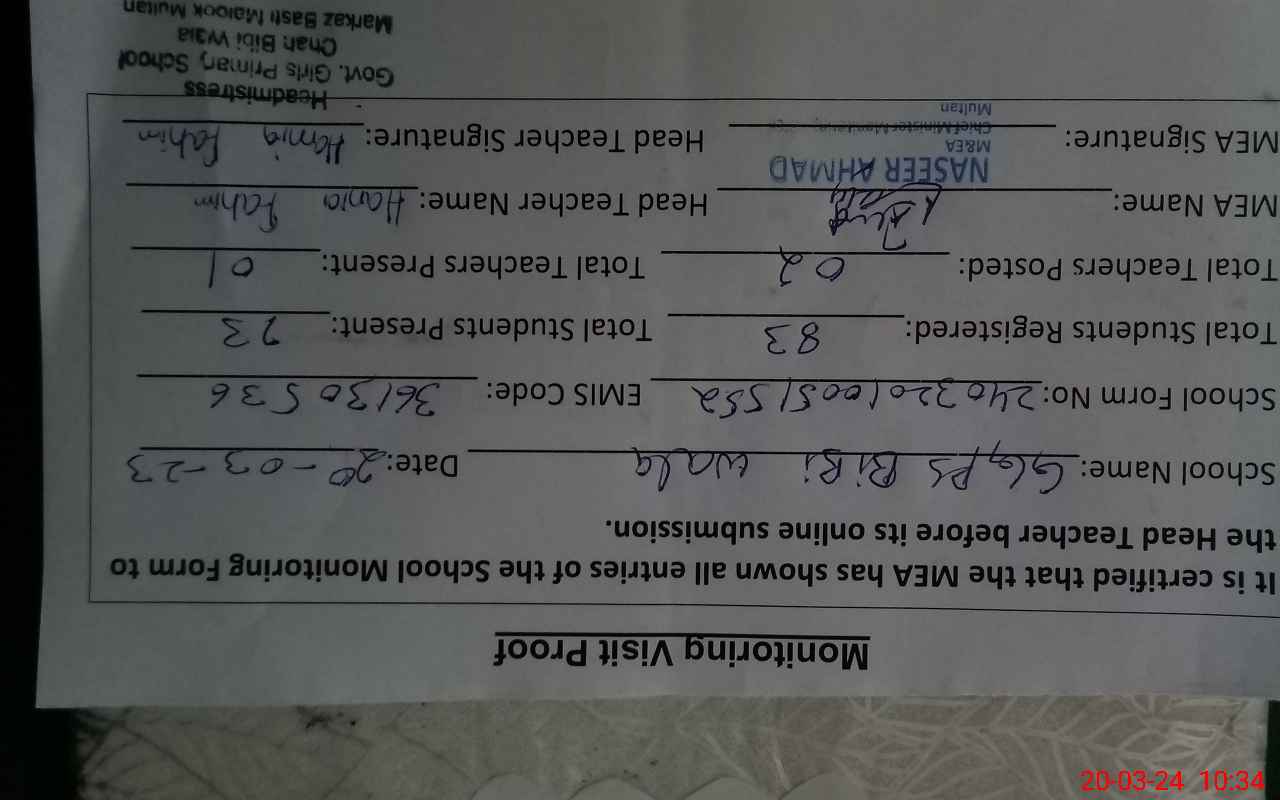 Monitoring Visit Proof
It is certified that the MEA has shown all entries of the School Monitoring Form to
the Head Teacher before its online submission.
School Name: GGPS BiBi wala Date: 20-03-23
School Form No: 24032010051552 EMIS Code: 36130536
Total Students Registered: 83 Total Students Present: 73
Total Teachers Posted: 02 Total Teachers Present: 01
MEA Name: Head Teacher Name: Hania Fahim
NASEER AHMAD
M&EA
MEA Signature: Head Teacher Signature: Hamia Fahim
Chief Minister Monitoring
Multan
Headmistress
Govt. Girls Primary School
Chah Bibi Wala
Markaz Basti Malook Multan
20-03-24 10:34